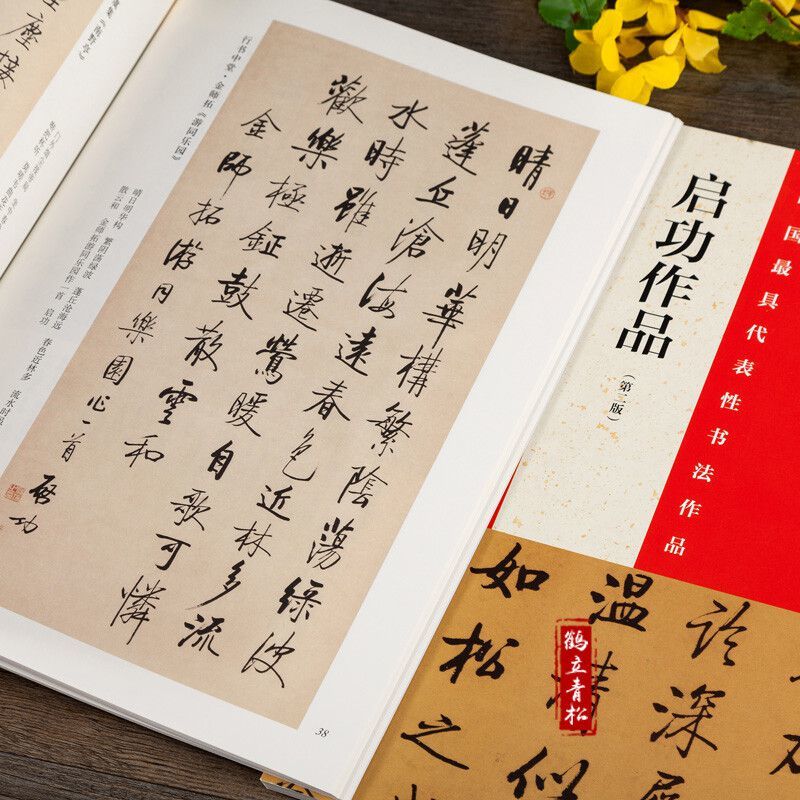 行书中堂·金师拓《游同乐园》
晴日明華構繁陰蕩綠波
蓬丘滄海遠春色近林多流
水時雖逝遷鶯暖自歌可憐
歡樂極鉦鼓散雲和
金師拓游同樂園作一首
啟功
晴日明华构 繁阴荡绿波 蓬丘沧海远 春色近林多 流水时虽
散云和 金师拓游同乐园作一首 启功
38
生塵接
《南野亭》
国最具代表性书法作品
启功作品
（第二版）
深
温清
似
如松之
鹤立青松